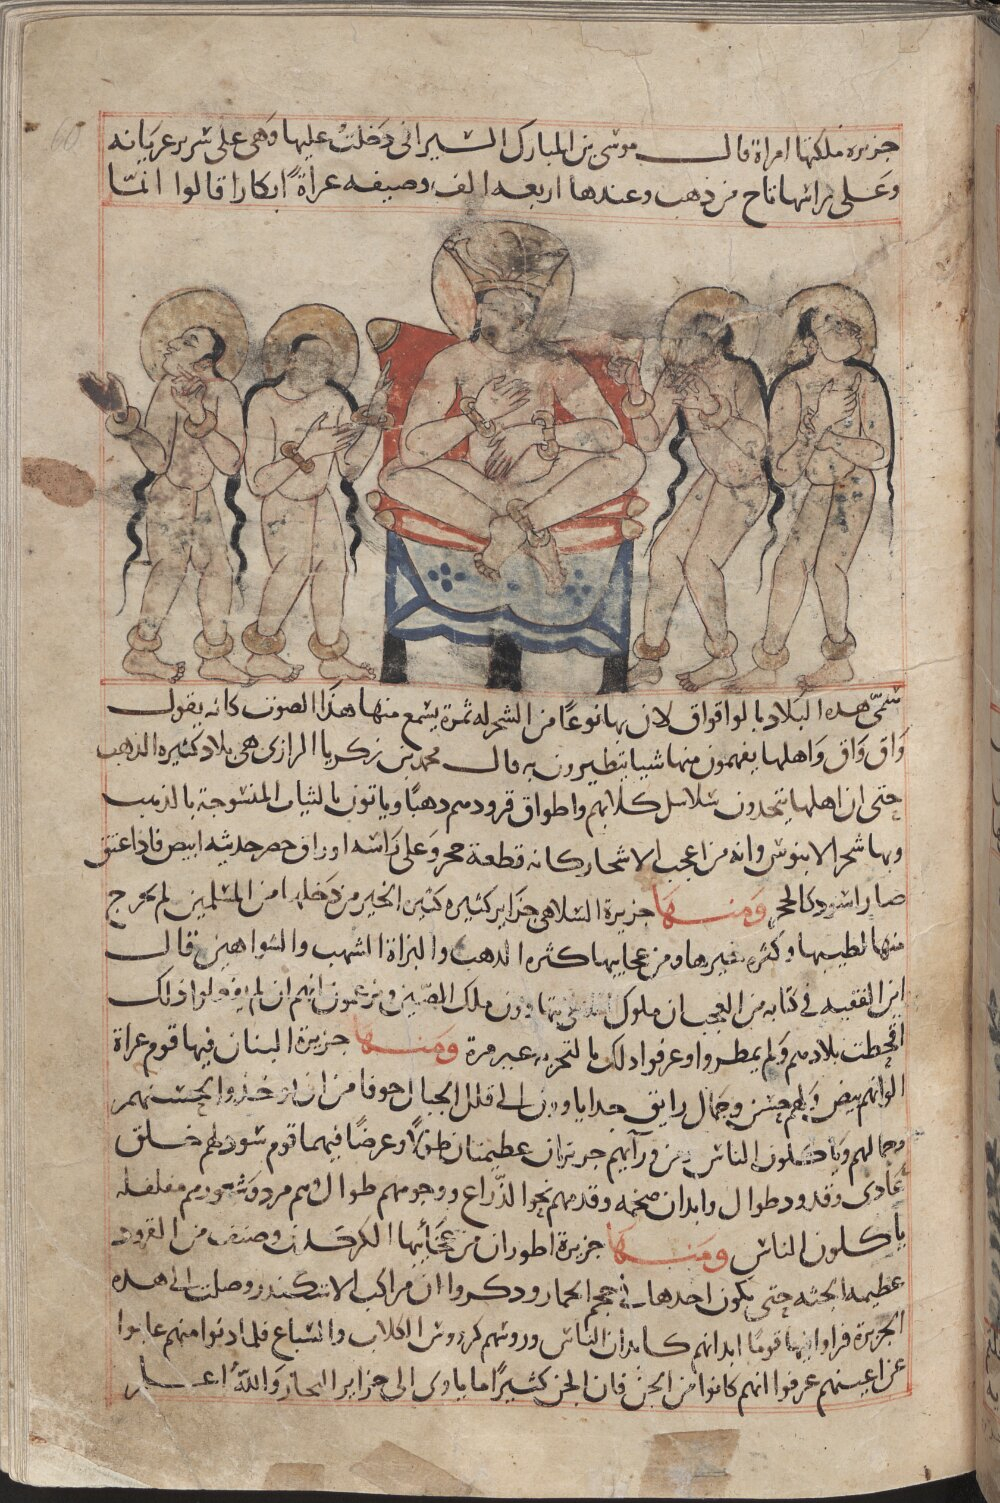 جزيره ملكتها امراة قال موسى بن المبارك السيرافى دخلت عليها وهى على سرير عريانه
وعلى راسها تاج من ذهب وعندها اربعه الف وصيفه عراة ابكارا قالوا انما
سمى هذه البلاد بالواقواق لان بها نوعا من الشجر له ثمرة يسمع منها هذا الصوت كانه يقول
واق واق واهلها يفهمون منها شيا يتطيرون به قال محمد بن زكريا الرازى هى بلاد كثيره الذهب
حتى ان اهلها يتخذون سلاسل كلابهم واطواق قرودهم ذهبا وياتون بالثياب المنسوجة بالذهب
وبها شجر الابنوس وانه من اعجب الاشجار كانه قطعة حجر وعلى راسه اوراق خضر خشبه ابيض فاذا عتق
صار اسود كالحجر ومنها جزيرة السلاهى جزاير كثيره كثيره الخير من دخلها من المسلمين لم يخرج
منها لطيبها وكثره خيرها ومن عجايبها كثره الذهب والبزاة الشهب والشواهين قال
ابن الفقيه فى كتابه من العجب ان ملوك يتهادون ملك الصين ويزعمون انهم ان لم يفعلوا ذلك
اقحطت بلادهم ولم يمطروا وعرفوا ذلك بالتجربه غير مرة ومنها جزيرة البنان فيها قوم عراة
الوانهم بيض ولهم حسن وجمال رايق جدا ياوون الى قلل الجبال خوفا من ان يوخذوا لحسنهم
وجمالهم وياكلون الناس ومن ورآيهم جزيرتان عظيمتان طولا وعرضا فيهما قوم سود لهم خلق
عادى وقدود طوال وابدان ضخمه وقدمهم نحو الذراع ووجوههم طوال وهم مردو شعورهم مفلفله
ياكلون الناس ومنها جزيرة اطوران من عجائبها الكركدن وصنف من القرود
عظيمه الجثه حتى يكون احدها فى حجم الحمار وذكروا ان مراكب الاسكندر وصلت الى هذه
الجزيرة فراوا فيها قوما ابدانهم كابدان الناس وروسهم كروس الكلاب والسباع فلما دنوا منهم غابوا
عن اعينهم عرفوا انهم كانوا من الجن فان الجن كثيرا ما ياوى الى جزاير البحار والله اعلم